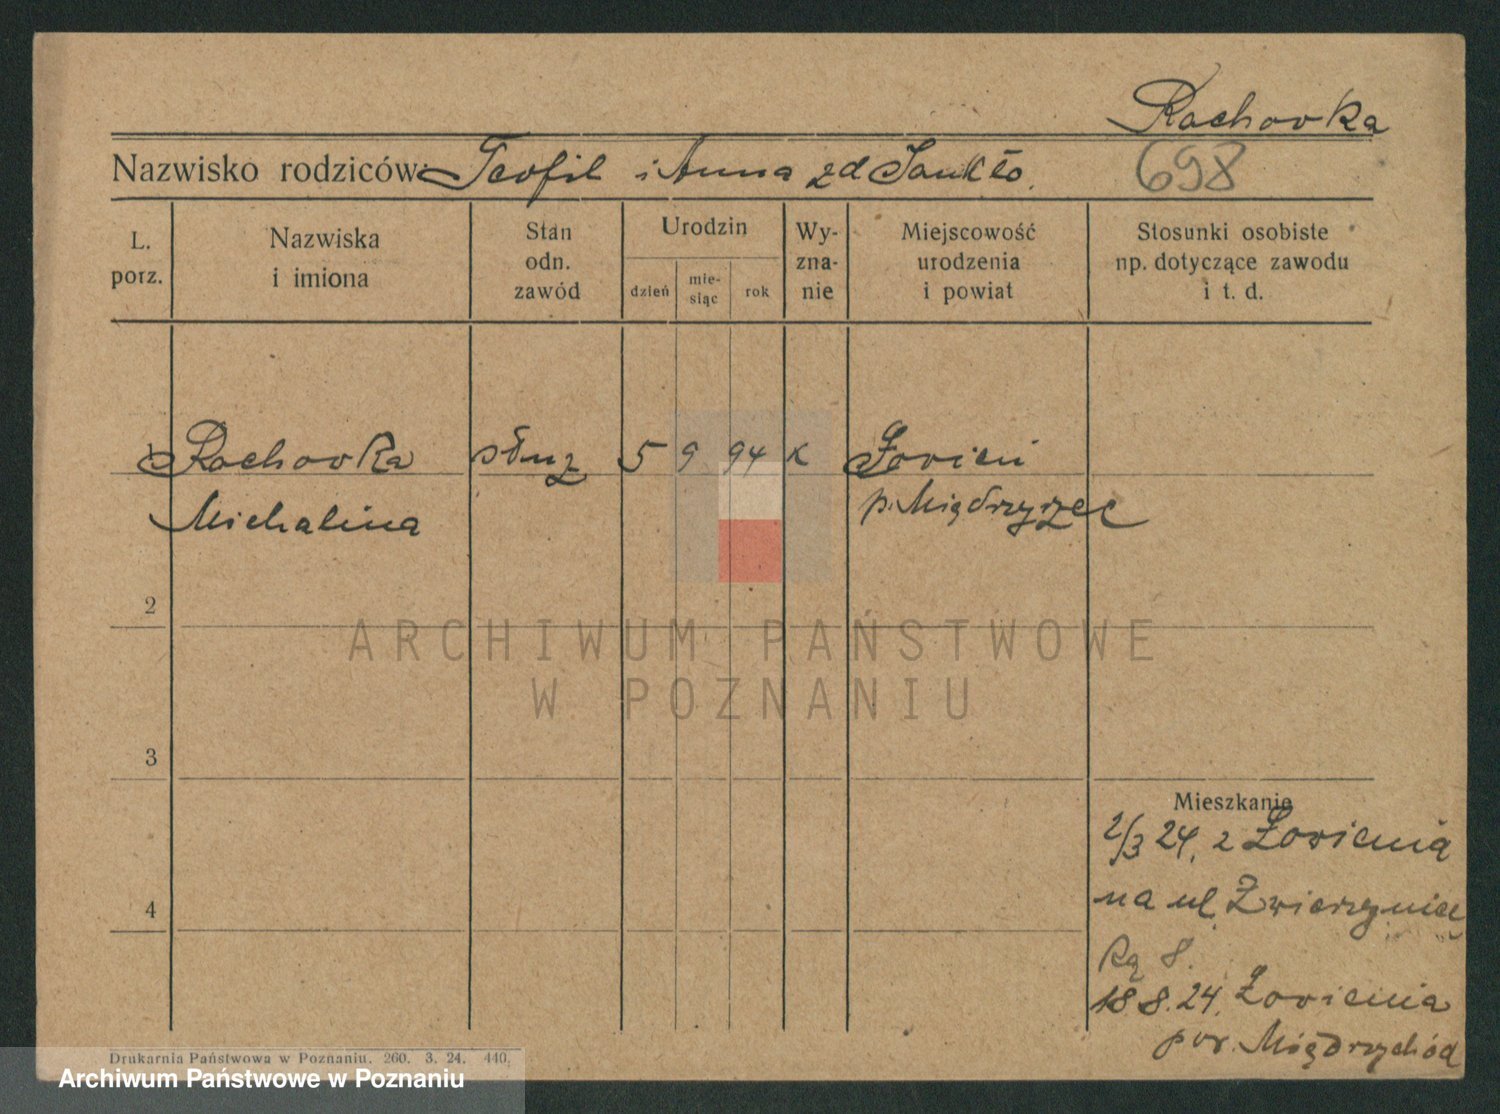 Rachovka
Nazwisko rodziców: Teofil i Anna zd
698
L. porz.
Nazwiska i imiona
Stan odn. zawód
Urodzin
dzień
mie-
siąc
rok
Wy-
zna-
nie
Miejscowość
urodzenia
i powiat
Stosunki osobiste
np. dotyczące zawodu
i t. d.
1 Rachovka służ 5 9 94 K
Michalina p. Międrzyrzec
2
3
4
Mieszkanie
2/3 24. z Łovienia
na ul. Zwierzyniec
ką 8.
18 8. 24. Łovienia
pov. Międrzychód
ARCHIWUM PAŃSTWOWE
W POZNANIU
Drukarnia Państwowa w Poznaniu. 260. 3. 24. 440.
Archiwum Państwowe w Poznaniu